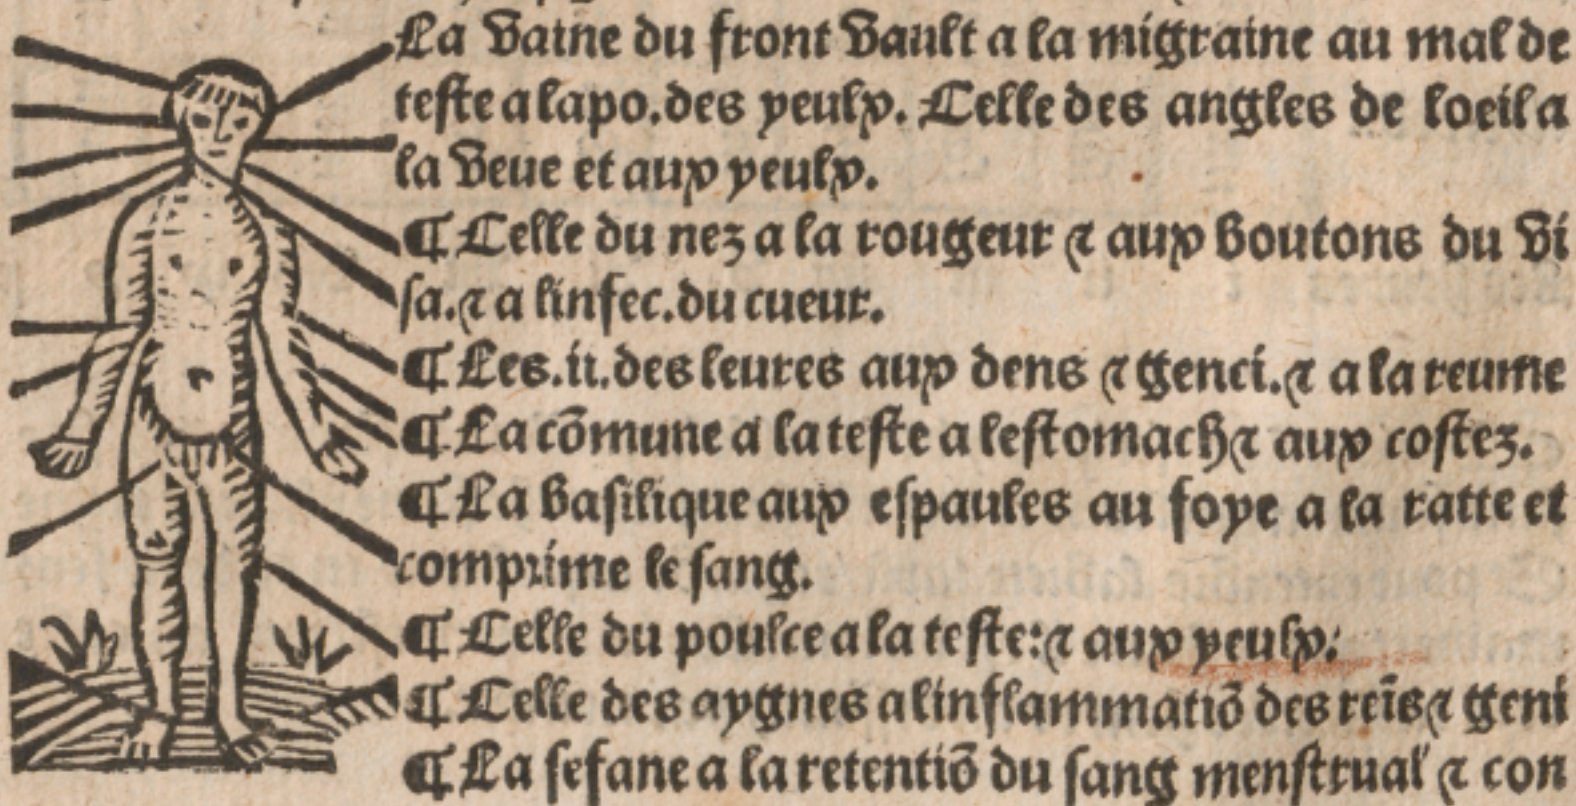 La vaine du front vault a la migraine au mal de
teste a lapo.des yeulx. Celle des angles de loeil a
la veue et aux yeulx.
¶ Celle du nez a la rougeur ⁊ aux boutons du vi
sa.⁊ a linfec.du cueur.
¶ Les.ii.des leures aux dens ⁊ genci.⁊ a la reume
¶ La cõmune a la teste a lestomach ⁊ aux costez.
¶ La basilique aux espaules au foye a la ratte et
comprime le sang.
¶ Celle du poulce a la teste:⁊ aux yeulx:
¶ Celle des aygnes a linflammatiõ des reĩs ⁊ geni
¶ La sefane a la retentiõ du sang menstrual ⁊ con